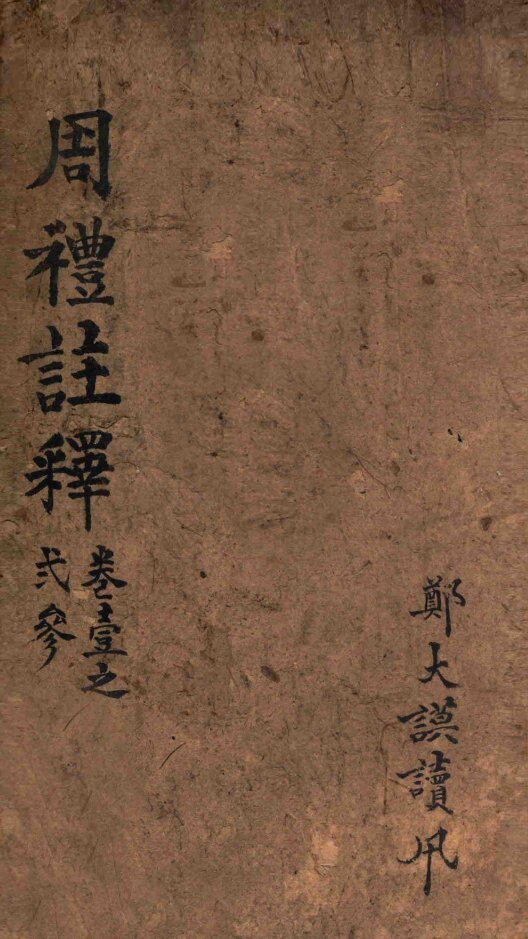 周禮註釋
卷壹之
弍參
鄭大謨讀